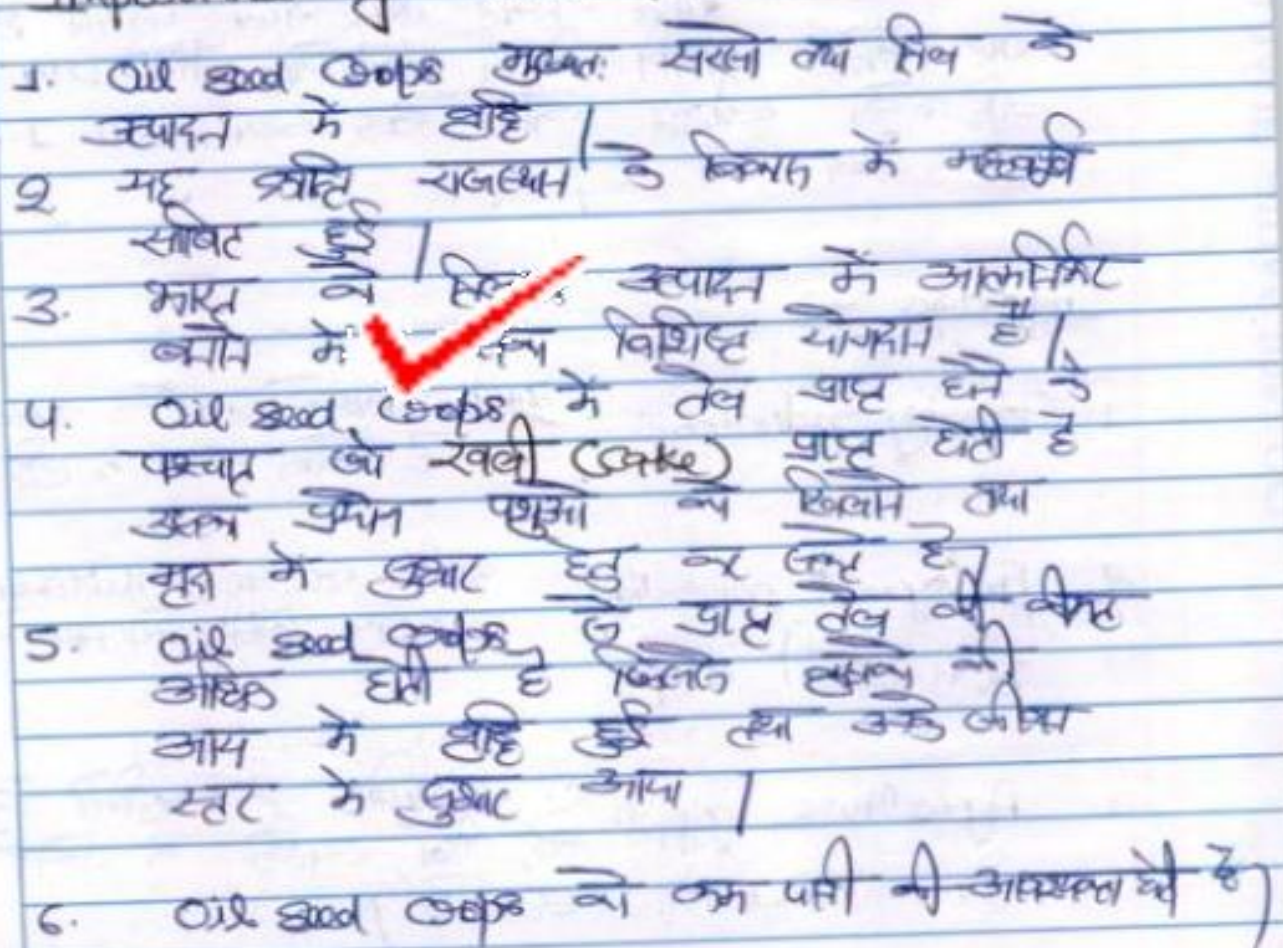 1. Oil seed Crops मुख्यतः सरसो तथा तिल के
उत्पादन में वृद्धि |
2 यह क्रांति राजस्थान के विकास में महत्वपूर्ण
साबित हुई |
3. भारत को उत्पादन में आत्मनिर्भर
बनाने में विशिष्ट योगदान है |
4. Oil seed Crops में तेल प्राप्त होने के
पश्चात जो खली (Cake) प्राप्त होती है
उसका प्रयोग पशुओ को खिलाने तथा
मृदा में सुधार हेतु कर सकते है |
5. Oil seed Crops से प्राप्त तेल की कीमत
अधिक होती है जिससे कृषको की
आय में वृद्धि हुई तथा उनके जीवन
स्तर में सुधार आया |
6. Oil seed Crops को कम पानी की आवश्यकता होती है |